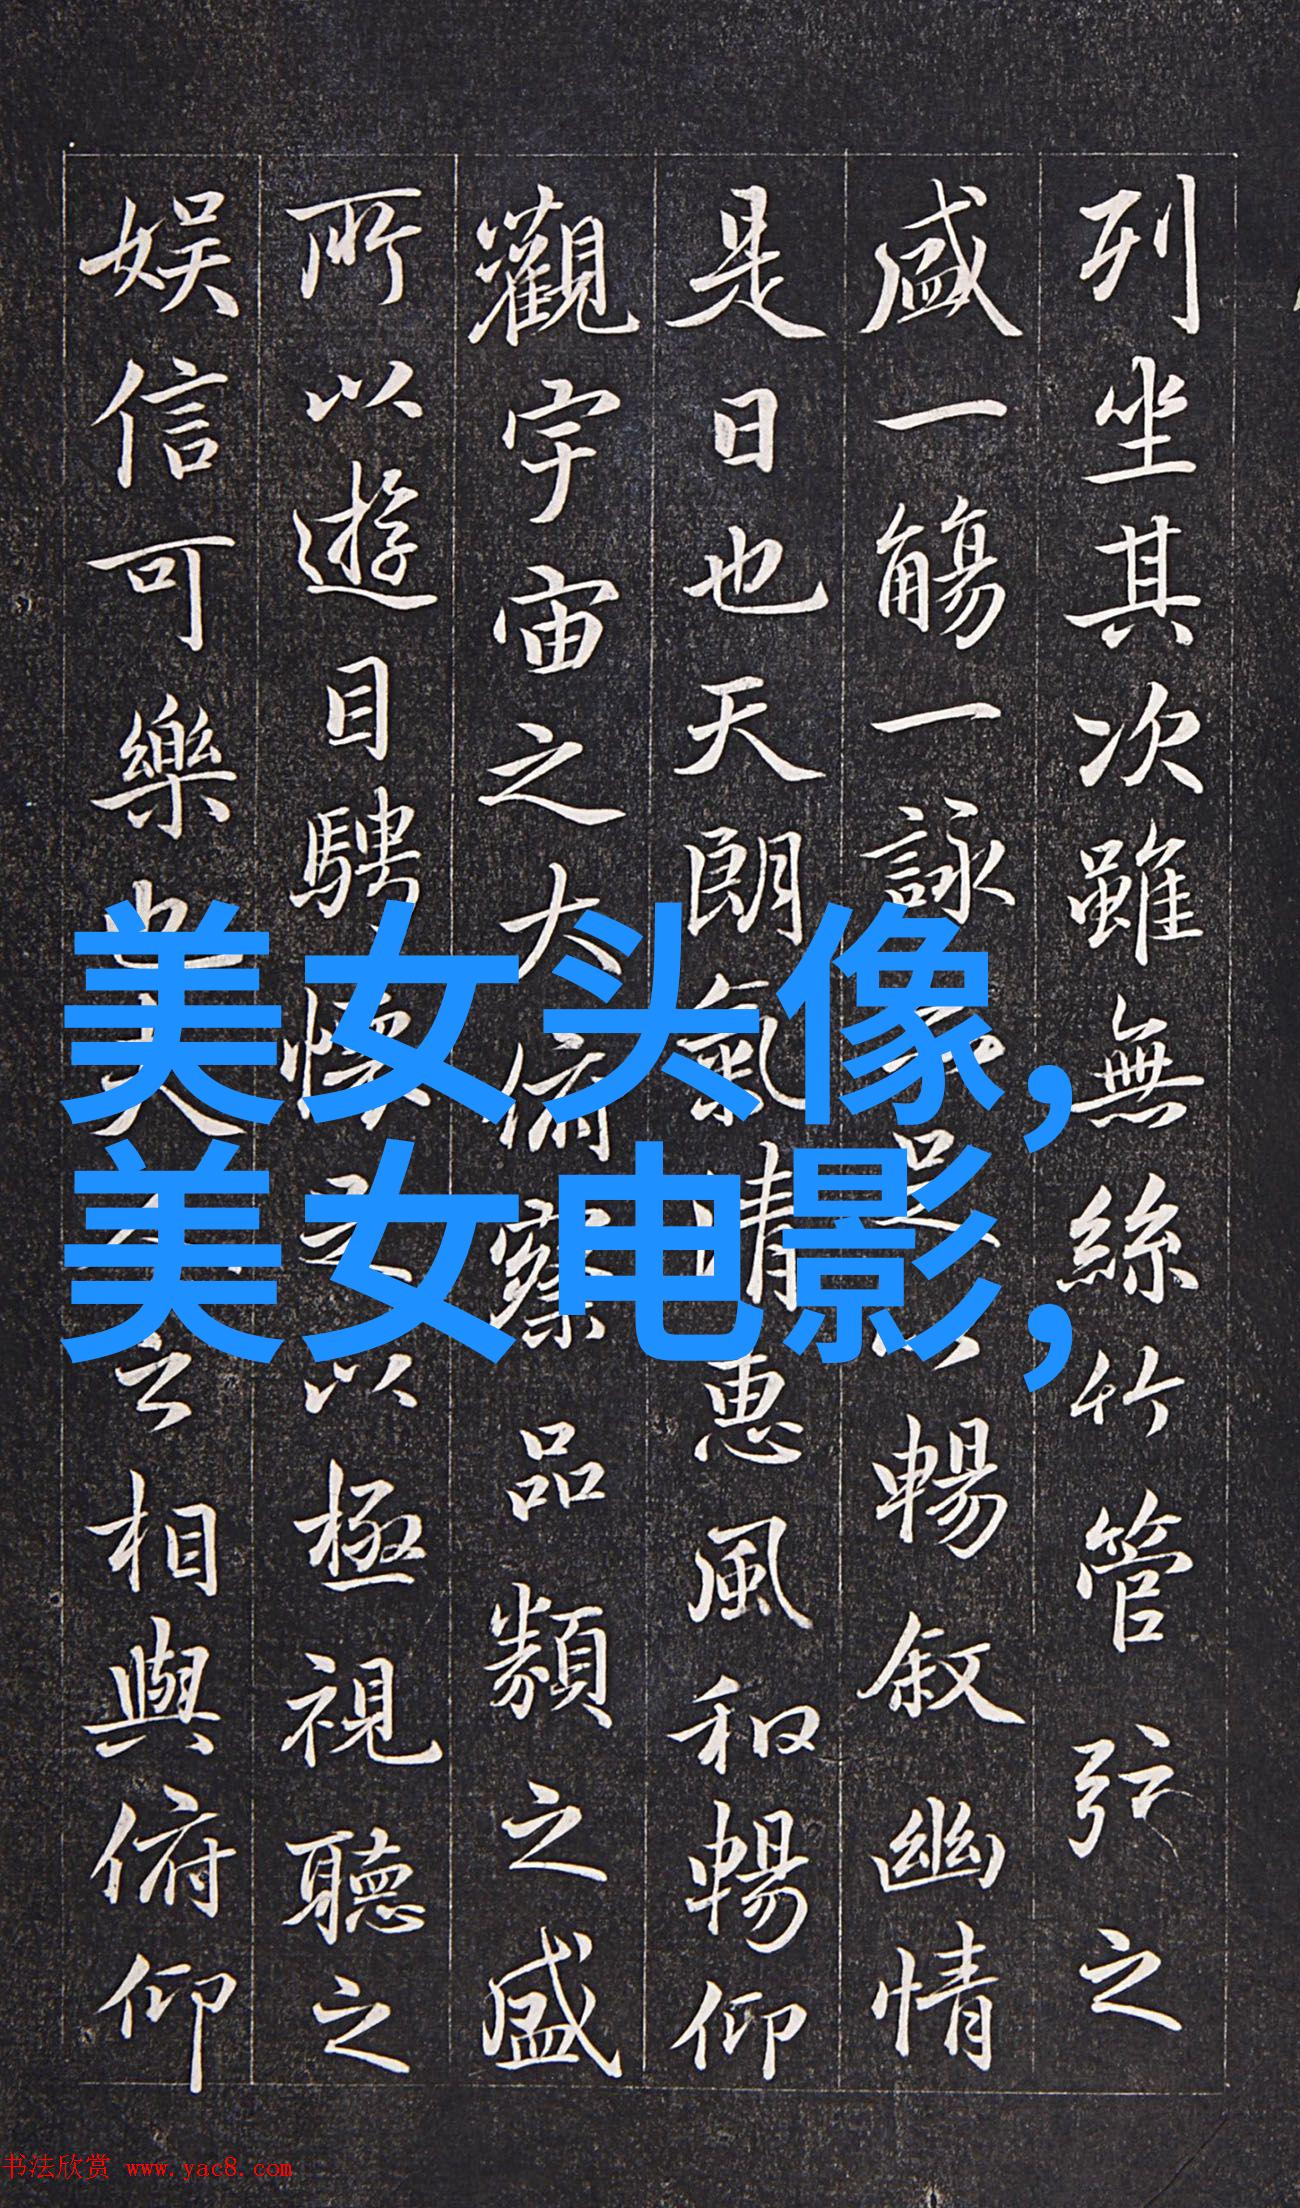 列坐其次雖無絲竹管弦之
盛一觴一詠亦足以暢敘幽情
是日也天朗氣清惠風和暢仰
觀宇宙之大俯察品類之盛
所以遊目騁懷足以極視聽之
娛信可樂也夫人之相與俯仰
美女头像,
美女电影,
书法欣赏 www.yac8.com